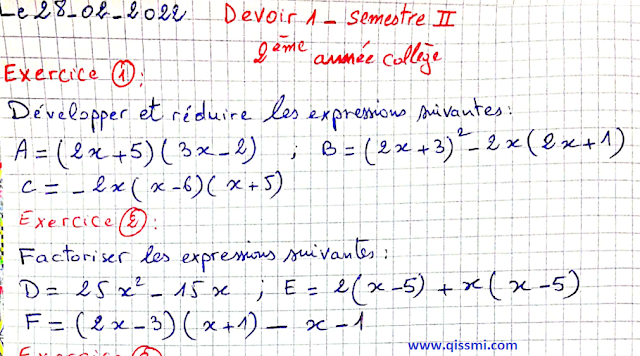 Le 28-02-2022 Devoir 1 - semestre II
2ème année collège
Exercice ①:
Développer et réduire les expressions suivantes:
A = (2x+5)(3x-2) ; B = (2x+3)² - 2x(2x+1)
C = - 2x(x-6)(x+5)
Exercice ②:
Factoriser les expressions suivantes:
D = 25x² - 15x ; E = 2(x-5) + x(x-5)
F = (2x-3)(x+1) - x - 1
www.qissmi.com